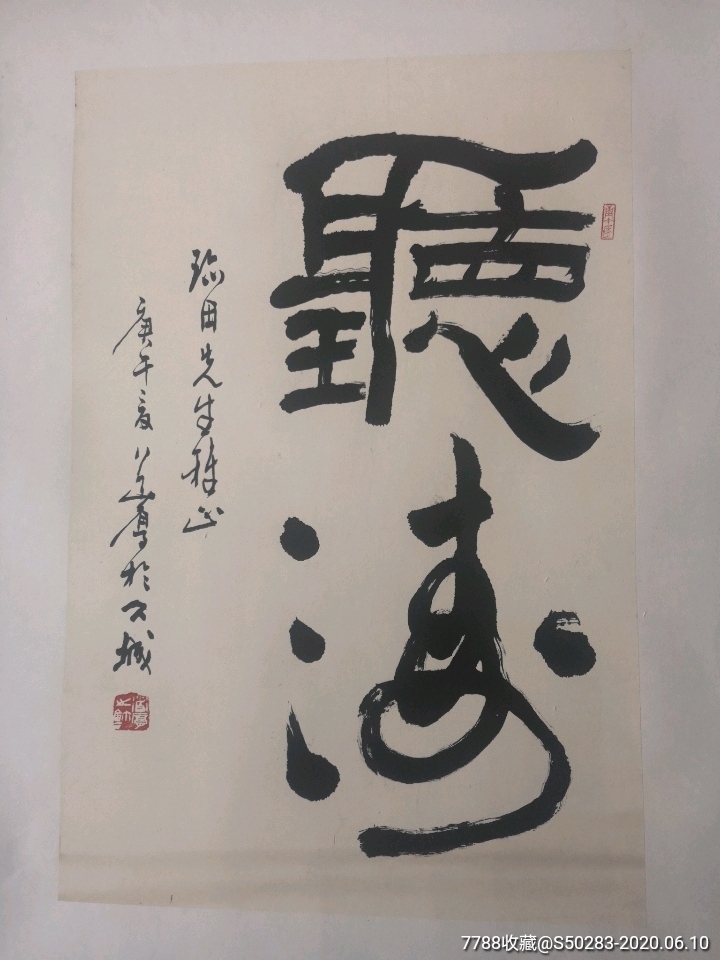 聽濤
珎田先生雅正
庚午夏於石城
7788收藏@S50283-2020.06.10